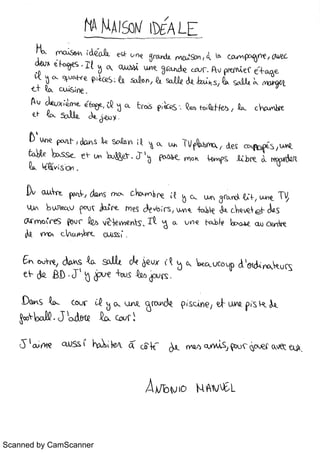 MA MAISON IDÉALE
Ma maison idéale est une grande maison, à la campagne, avec
deux étages. Il y a aussi une grande cour. Au premier étage
il y a quatre pièces: le salon, la salle de bains, la salle à manger
et la cuisine.
Au deuxième étage, il y a trois pièces: les toilettes, la chambre
et la salle de jeux.
D'une part, dans le salon il y a un TV plasma, des canapés, une
table basse et un buffet. J'y passe mon temps libre à regarder
la télévision.
Du autre part, dans ma chambre il y a un grand lit, une TV,
un bureau pour faire mes devoirs, une table de chevet et des
armoires pour les vêtements. Il y a une table basse au centre
de ma chambre aussi.
En outre, dans la salle de jeux il y a beaucoup d'ordinateurs
et de BD. J'y joue tous les jours.
Dans la cour il y a une grande piscine, et une piste de
football. J'adore la cour!
J'aime aussi habiter à côté de mes amis, pour jouer avec eux.
ANTONIO MANUEL
Scanned by CamScanner